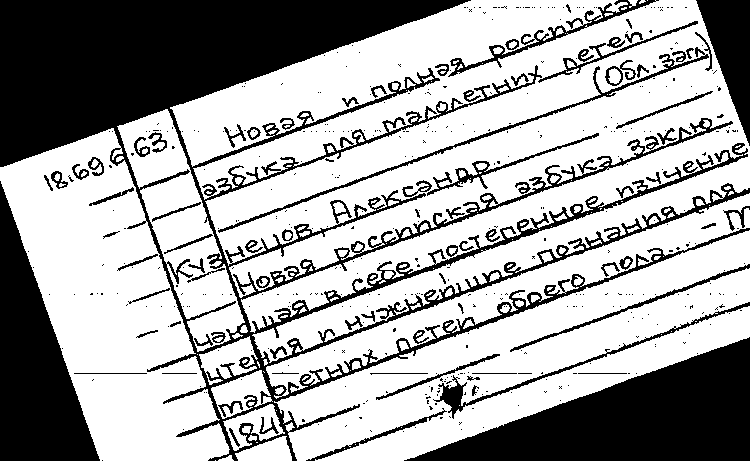 18.69.6.63. Новая и полная российская
азбука для малолетних детей.
(Обл. загл.)
Кузнецов, Александр.
Новая российская азбука, заклю-
чающая в себе: постепенное изучение
чтения и нужнейшие познания для
малолетних детей обоего пола... -
1844.